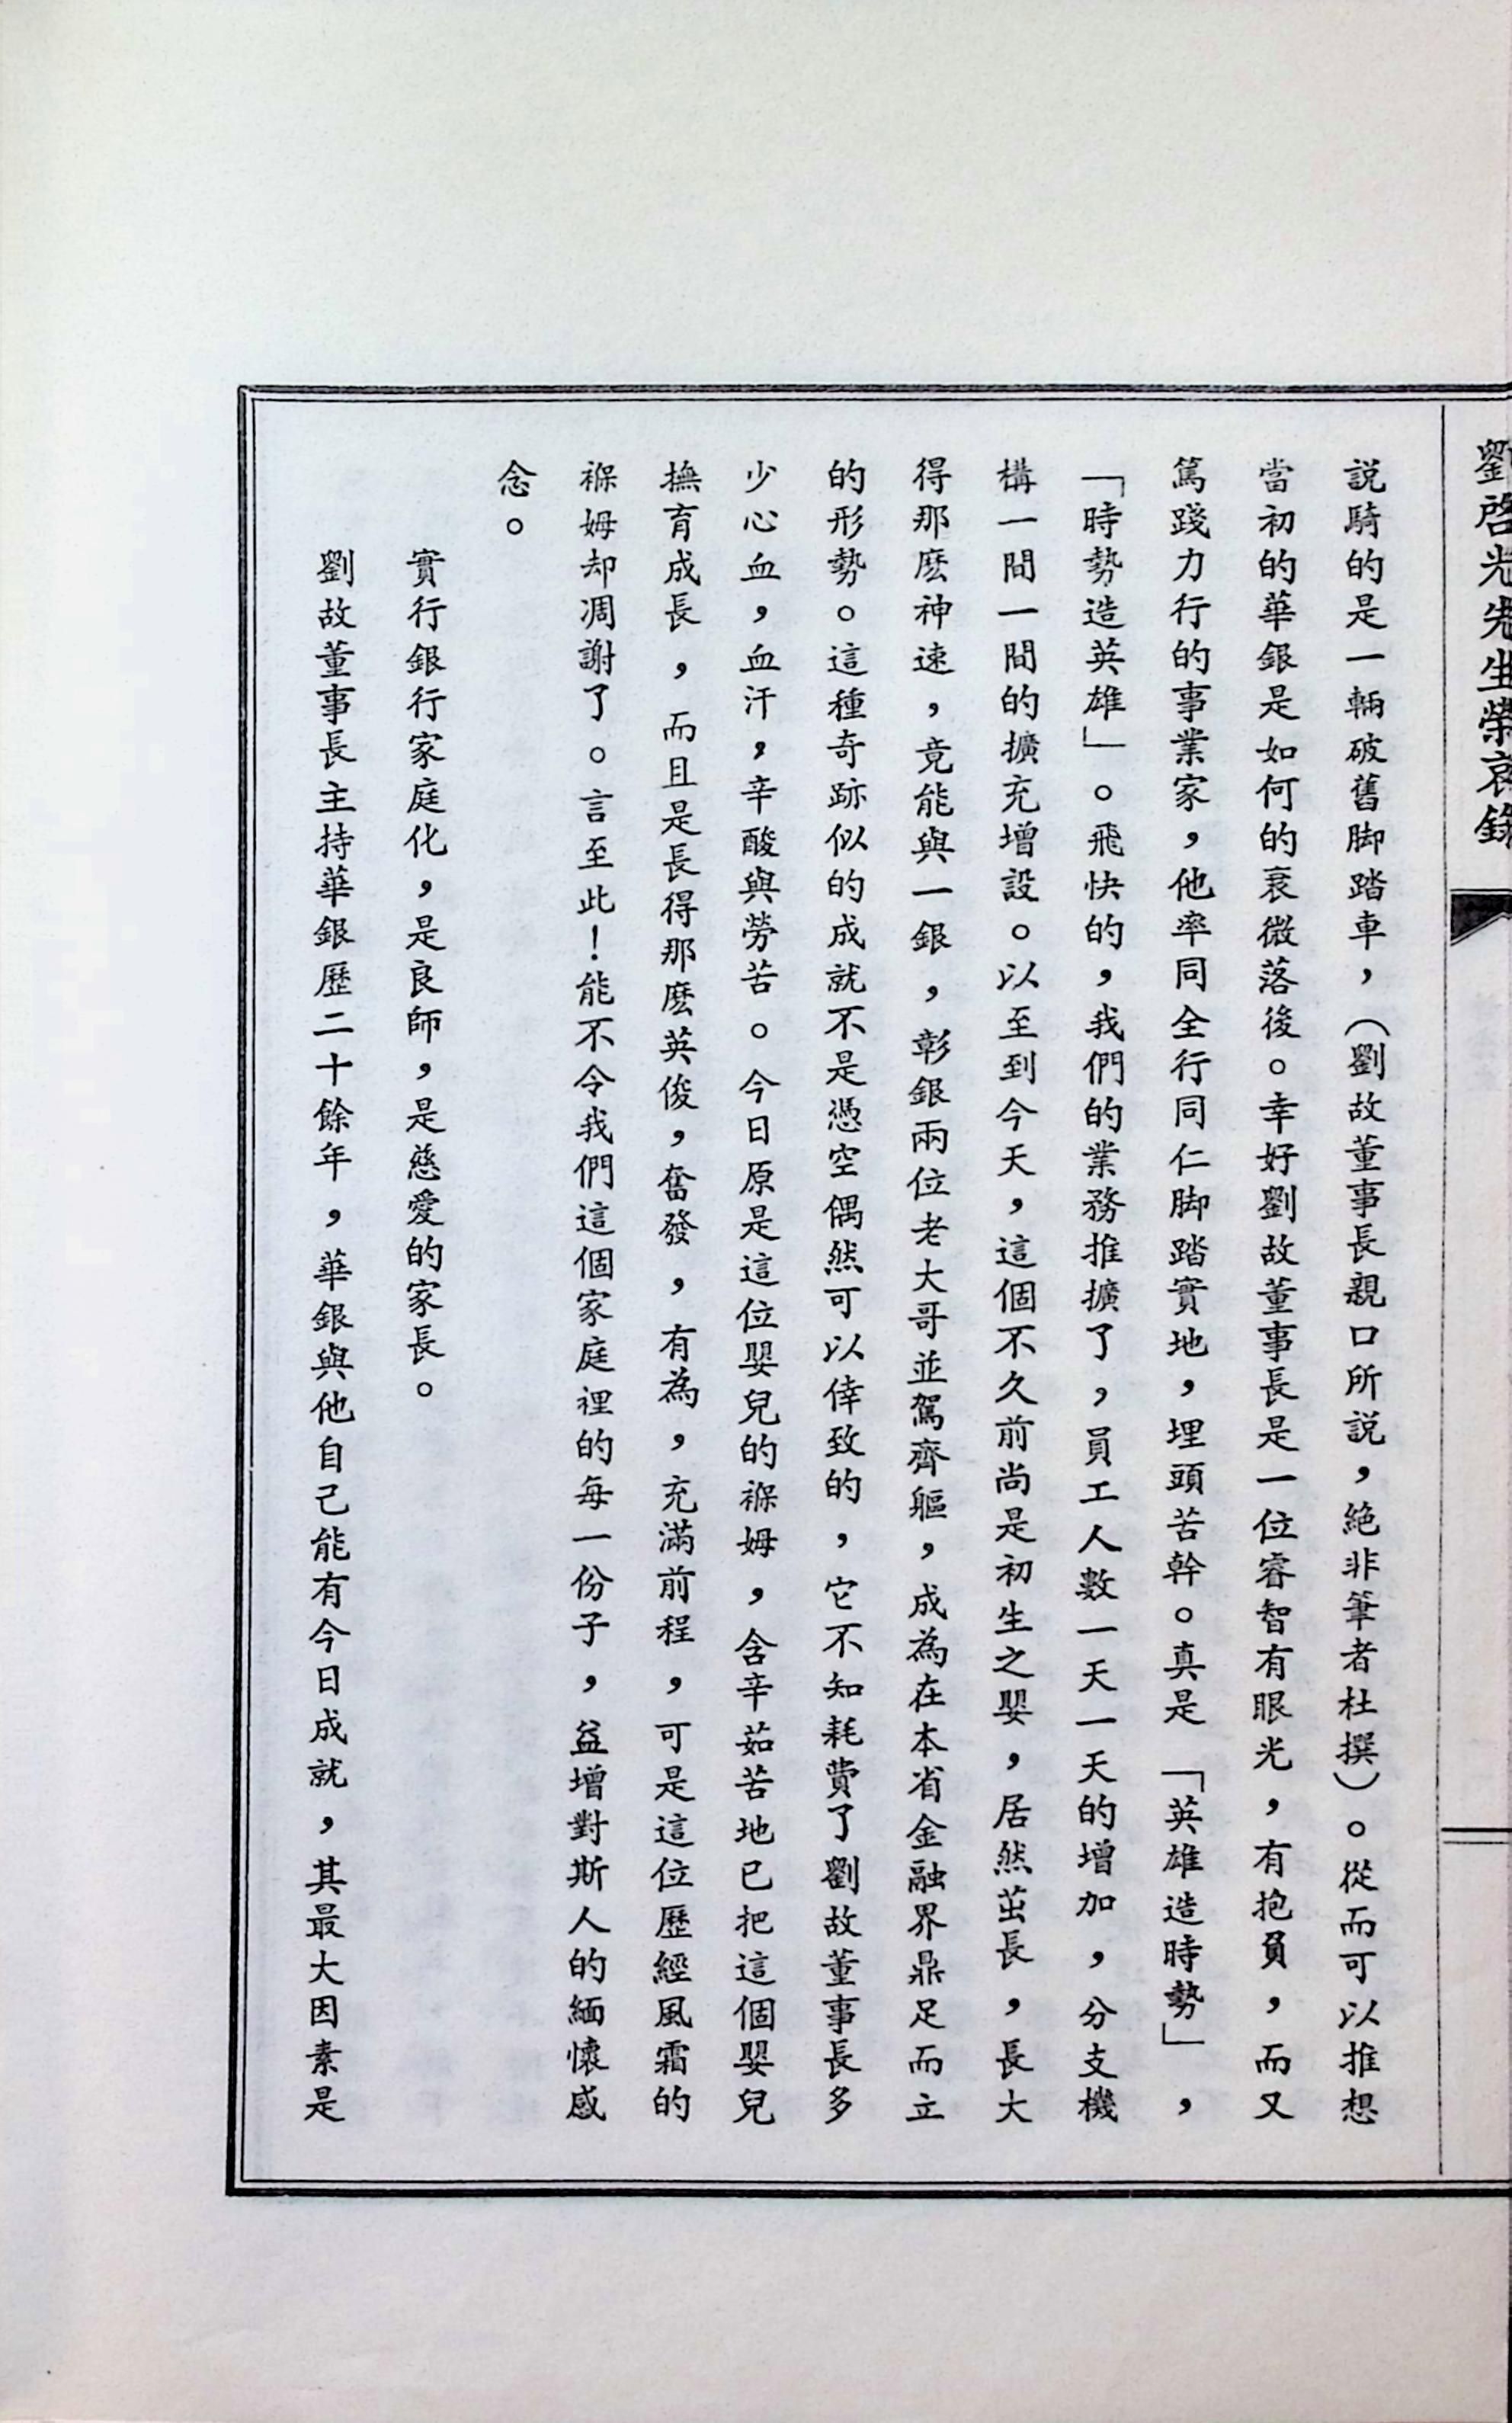 劉啓光先生榮哀錄
説騎的是一輛破舊脚踏車，（劉故董事長親口所説，絶非筆者杜撰）。從而可以推想
當初的華銀是如何的衰微落後。幸好劉故董事長是一位睿智有眼光，有抱負，而又
篤踐力行的事業家，他率同全行同仁脚踏實地，埋頭苦幹。真是「英雄造時勢」，
「時勢造英雄」。飛快的，我們的業務推擴了，員工人數一天一天的增加，分支機
構一間一間的擴充增設。以至到今天，這個不久前尚是初生之嬰，居然茁長，長大
得那麽神速，竟能與一銀，彰銀兩位老大哥並駕齊軀，成為在本省金融界鼎足而立
的形勢。這種奇跡似的成就不是憑空偶然可以倖致的，它不知耗費了劉故董事長多
少心血，血汗，辛酸與勞苦。今日原是這位嬰兒的褓姆，含辛茹苦地已把這個嬰兒
撫育成長，而且是長得那麽英俊，奮發，有為，充滿前程，可是這位歷經風霜的
褓姆却凋謝了。言至此！能不令我們這個家庭裡的每一份子，益增對斯人的緬懷感
念。
實行銀行家庭化，是良師，是慈愛的家長。
劉故董事長主持華銀歷二十餘年，華銀與他自己能有今日成就，其最大因素是